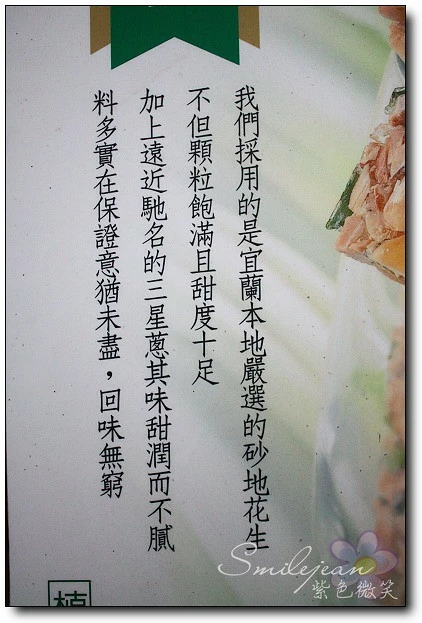 我們採用的是宜蘭本地嚴選的砂地花生
不但顆粒飽滿且甜度十足
加上遠近馳名的三星蔥其味甜潤而不膩
料多實在保證意猶未盡,回味無窮
Smilejean
紫色微笑